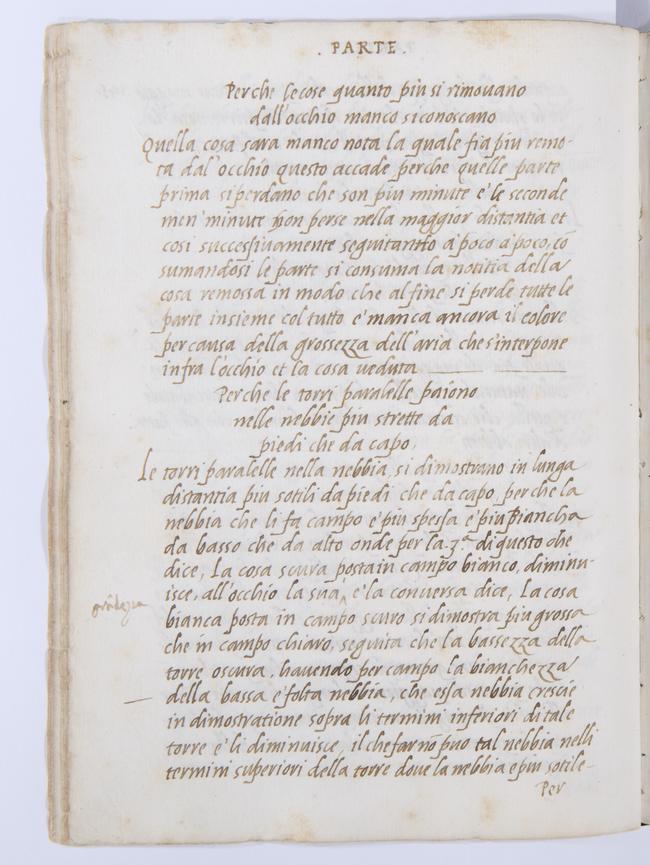 . PARTE .
Perche le cose quanto più si rimovano
dall'occhio manco si conoscano
Quella cosa sara manco nota la quale fia piu remo-
ta dal' occhio questo accade perche quelle parte
prima si perdano che son piu minute e' le seconde
men' minute non perse nella maggior distantia et
cosi successivamente seguitando à poco à poco, cō
sumandosi le parte si consuma la notitia della
cosa remossa in modo che al fine si perde tutte le
parte insieme col tutto e' manca ancora il colore
per causa della grossezza dell'aria che s'interpone
infra l'occhio et la cosa veduta
Perche le torri paralelle paiono
nelle nebbie piu strette da
piedi che da capo.
Le torri paralelle nella nebbia si dimostrano in lunga
distantia piu sotili da piedi che da capo, perche la
nebbia che li fa campo e' piu spessa e' piu biancha
da basso che da alto onde per la 3.ª di questo che
dice, La cosa scura posta in campo bianco, diminu-
isce, all'occhio la sua ^ e' la conversa dice, La cosa
grādezza
bianca posta in campo scuro si dimostra piu grossa
che in campo chiaro, seguita che la bassezza della
torre oscura, havendo per campo la bianchezza
della bassa e' folta nebbia, che essa nebbia crescie
in dimostratione sopra li termini inferiori di tale
torre e' li diminuisce, il che far nō puo tal nebbia nelli
termini superiori della torre dove la nebbia e piu sotile-
Per